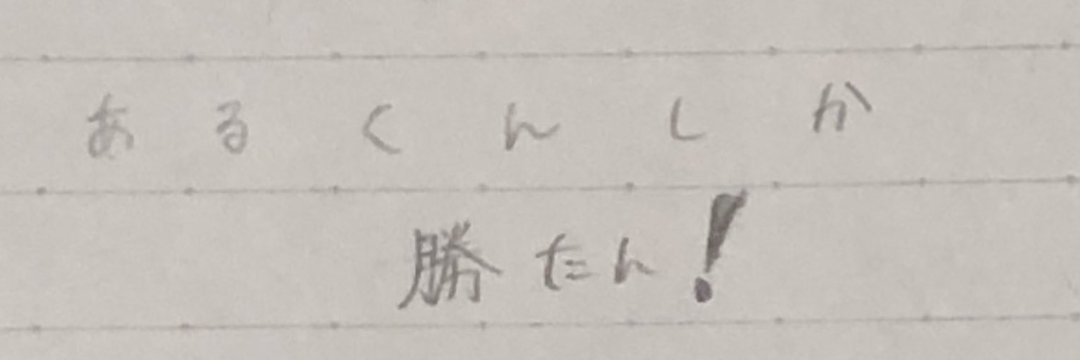 あるくんしか
勝たん!